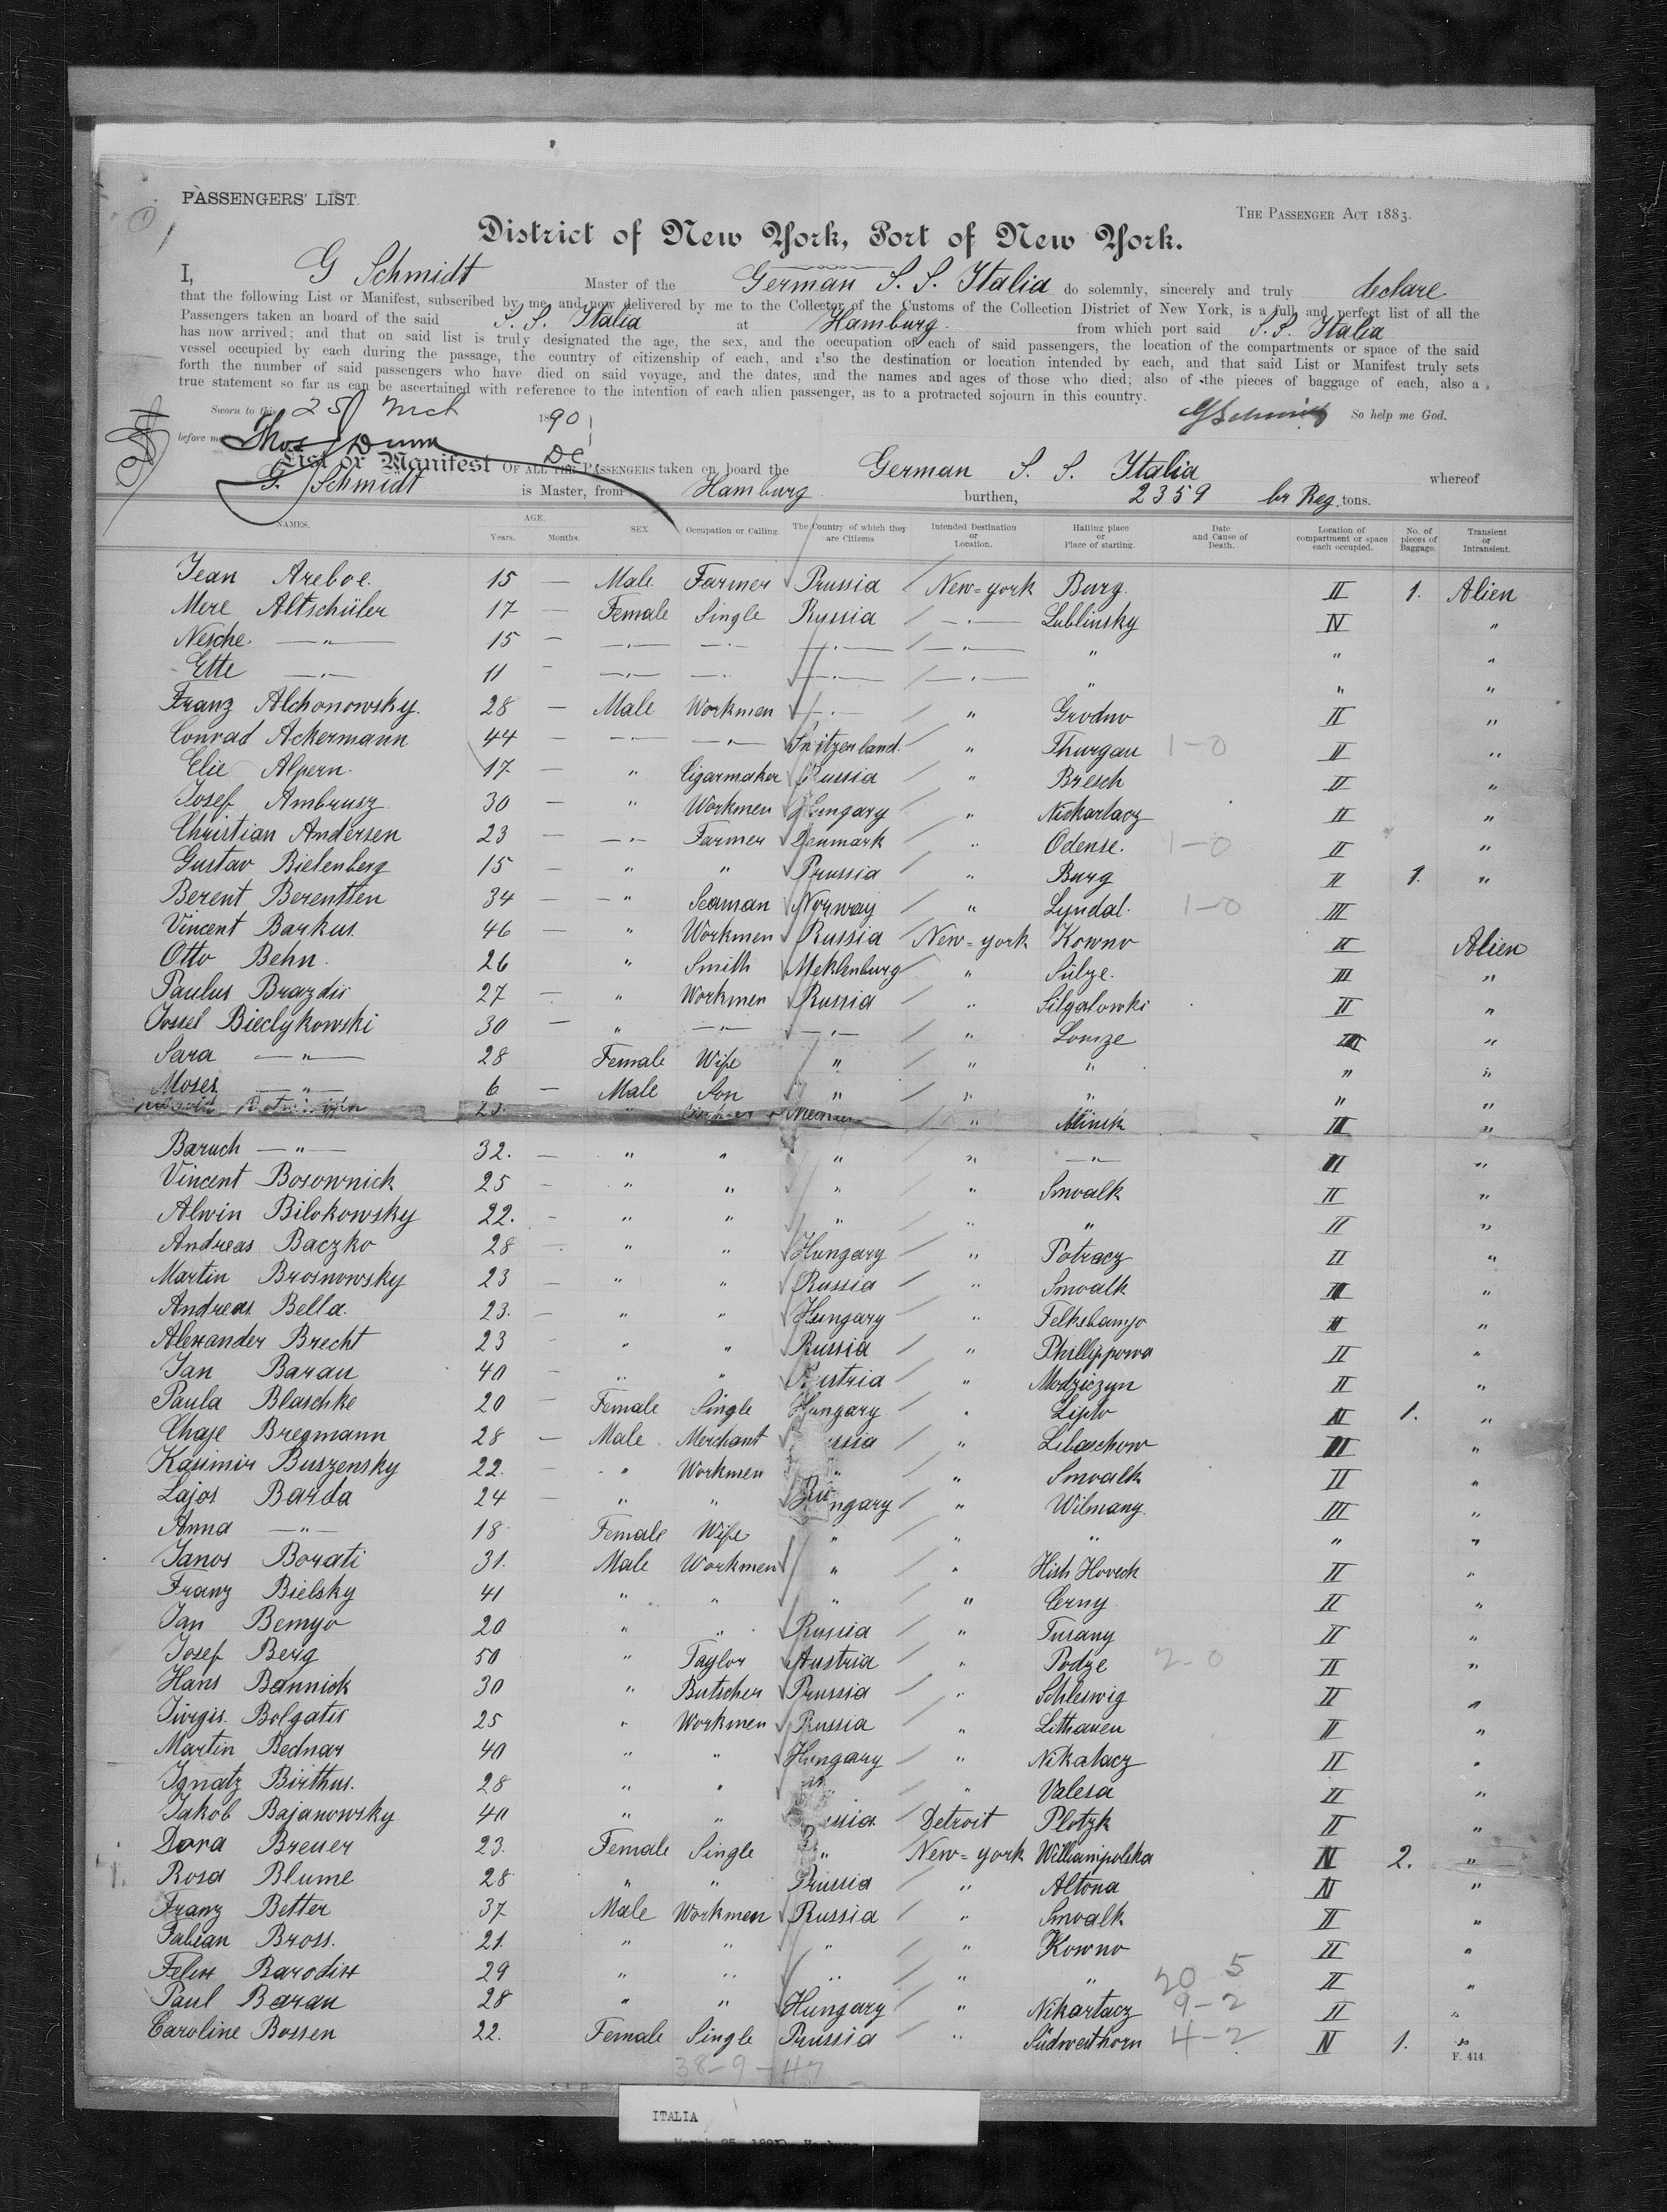 PASSENGERS' LIST.
THE PASSENGER ACT 1883.
District of New York, Port of New York.
I, G Schmidt Master of the German S. S. Italia do solemnly, sincerely and truly declare
that the following List or Manifest, subscribed by me and now delivered by me to the Collector of the Customs of the Collection District of New York, is a full and perfect list of all the
Passengers taken an board of the said S. S. Italia at Hamburg from which port said S. S. Italia
has now arrived; and that on said list is truly designated the age, the sex, and the occupation of each of said passengers, the location of the compartments or space of the said
vessel occupied by each during the passage, the country of citizenship of each, and also the destination or location intended by each, and that said List or Manifest truly sets
forth the number of said passengers who have died on said voyage, and the dates, and the names and ages of those who died; also of the pieces of baggage of each, also a
true statement so far as can be ascertained with reference to the intention of each alien passenger, as to a protracted sojourn in this country.
Sworn to this 25 Mch 1890 GSchmidt So help me God.
before me Thos Dunn DC
List or Manifest OF ALL THE PASSENGERS taken on board the German S. S. Italia whereof
G. Schmidt is Master, from Hamburg burthen, 2359 br Reg. tons.
NAMES. AGE. Years. Months. SEX. Occupation or Calling. The Country of which they are Citizens. Intended Destination or Location. Hailing place or Place of starting. Date and Cause of Death. Location of compartment or space each occupied. No. of pieces of Baggage. Transient or Intransient.
Jean Areboe. 15 — Male Farmer Prussia New-york Burg. II 1. Alien
Mere Altschüler 17 — Female Single Russia —"— Lublinsky IV "
Nesche —"— 15 — —"— —"— —"— —"— " " "
Ette —"— 11 — —"— —"— —"— —"— " " "
Franz Alchonowsky. 28 — Male Workmen —"— " Grodno II "
Conrad Ackermann 44 — —"— —"— Switzerland " Thurgau 1-0 II "
Elie Alpern. 17 — " Cigarmaker Russia " Bresch II "
Josef Ambrusz 30 — " Workmen Hungary " Nickartacz II "
Christian Andersen 23 — —"— Farmer Denmark " Odense. 1-0 II "
Gustav Bielenberg 15 — " " Prussia " Burg II 1. "
Berent Berentsen 34 — " Seaman Norway " Lyndal. 1-0 III
Vincent Barkus 46 — " Workmen Russia New-york Kowno II Alien
Otto Behn. 26 " Smith Meklenburg " Sülze. III "
Paulus Brazdis 27 — " Workmen Russia " Silgalowki II "
Jossel Bieclykowski 30 — " —"— —"— " Lomze III "
Sara —"— 28 Female Wife " " " " "
Moses —"— 6 — Male Son " " " " "
23. " " Minsk III "
Baruch —"— 32. — " " " " —"— III "
Vincent Bosownick 25 — " " " " Smoalk II "
Alwin Bilokowsky 22. — " " " " " II "
Andreas Baczko 28 — " " Hungary " Potracz II "
Martin Brosnowsky 23 — " " Russia " Smoalk III "
Andreas Bella. 23. — " " Hungary " Felkebanyo II "
Alexander Brecht 23 — " " Russia " Phillippowa II "
Jan Baran 40 — " " Austria " Modziczyn II "
Paula Blaschke 20 — Female Single Hungary " Lipto IV 1. "
Chaje Bregmann 28 — Male Merchant ussia " Libaschow III "
Kasimir Buszensky 22. — " Workmen " " Smoalk II "
Lajos Barda 24 — " " Hungary " Wilmany. III "
Anna —"— 18 Female Wife " " " " "
Janos Borati 31. Male Workmen " " Hish Hoveck II "
Franz Bielsky 41 " " " " Cerny II "
Jan Bemyo 20 " " Russia " Turany II "
Josef Berg 50 " Taylor Austria " Podze 2-0 II "
Hans Bannick 30 " Butscher Prussia " Schleswig II "
Jivrgis. Bolgatis 25 " Workmen Russia " Litthauen II "
Martin Bednar 40 " " Hungary " Nikatacz II "
Ignatz Birthus. 28 " " " " Valesa II "
Jakob Bajanowsky 40 " " ussia Detroit Plotzk II "
Dora Breuer 23. Female Single " New-york Williampolska IV 2. "
Rosa Blume 28 " " Prussia " Altona IV "
Franz Better 37 Male Workmen Russia " Smoalk II "
Fabian Bross. 21. " " " " Kowno II "
Felix Barodix 29 " " " " " 20 5 II "
Paul Baran 28 " " Hungary " Nikartacz 9-2 II "
Caroline Bossen 22. Female Single Prussia " Südwesthorn 4-2 IV 1. "
F. 414.
38-9-47
ITALIA